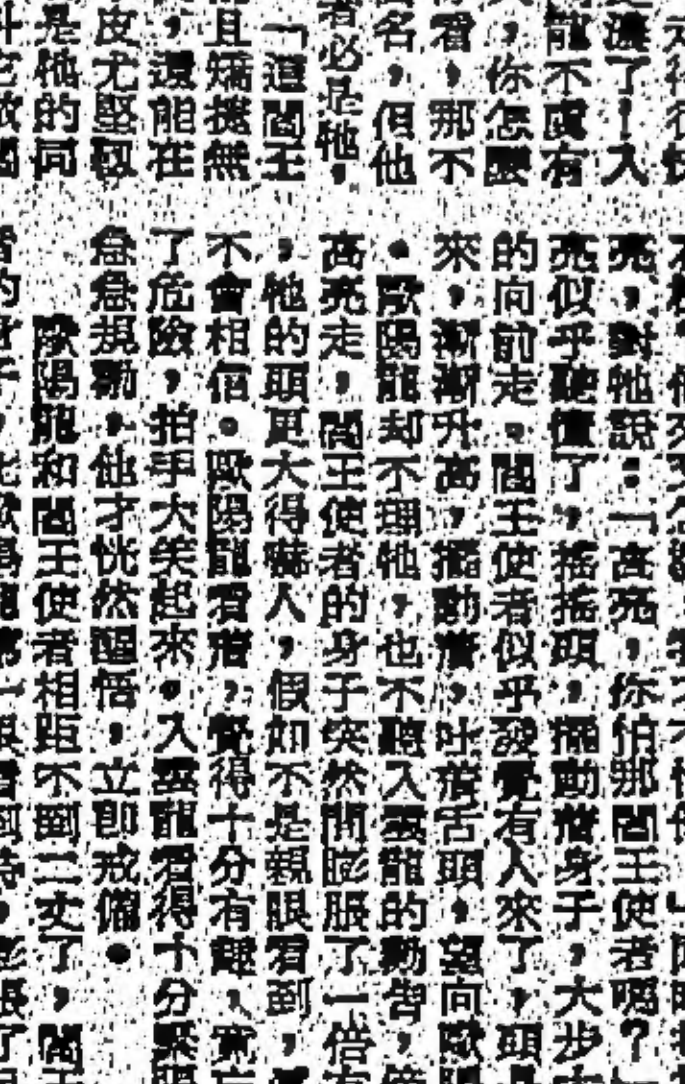 了!入
龍不虞有
,你怎麼
看,那不
名,但他
者必是牠,
「道閻王
且矯捷無
,還能在
皮尤堅韌
是牠的同
亮,對牠說:「高亮,你怕那閻王使者嗎?
亮似乎聽懂了,搖搖頭,擺動着身子,大步
的向前走。閻王使者似乎發覺有人來了,頭
來,漸漸升高,擺動着,吐着舌頭,望向歐
。歐陽龍却不理牠,也不聽入雲龍的勸告,
高亮走,閻王使者的身子突然間膨脹了一倍
,牠的頭更大得嚇人,假如不是親眼看到,
不會相信。歐陽龍看着,覺得十分有趣,
了危險,拍手大笑起來。入雲龍看得十分緊
急急規勸,他才恍然醒悟,立卽戒備。
歐陽龍和閻王使者相距不到二丈了,閻